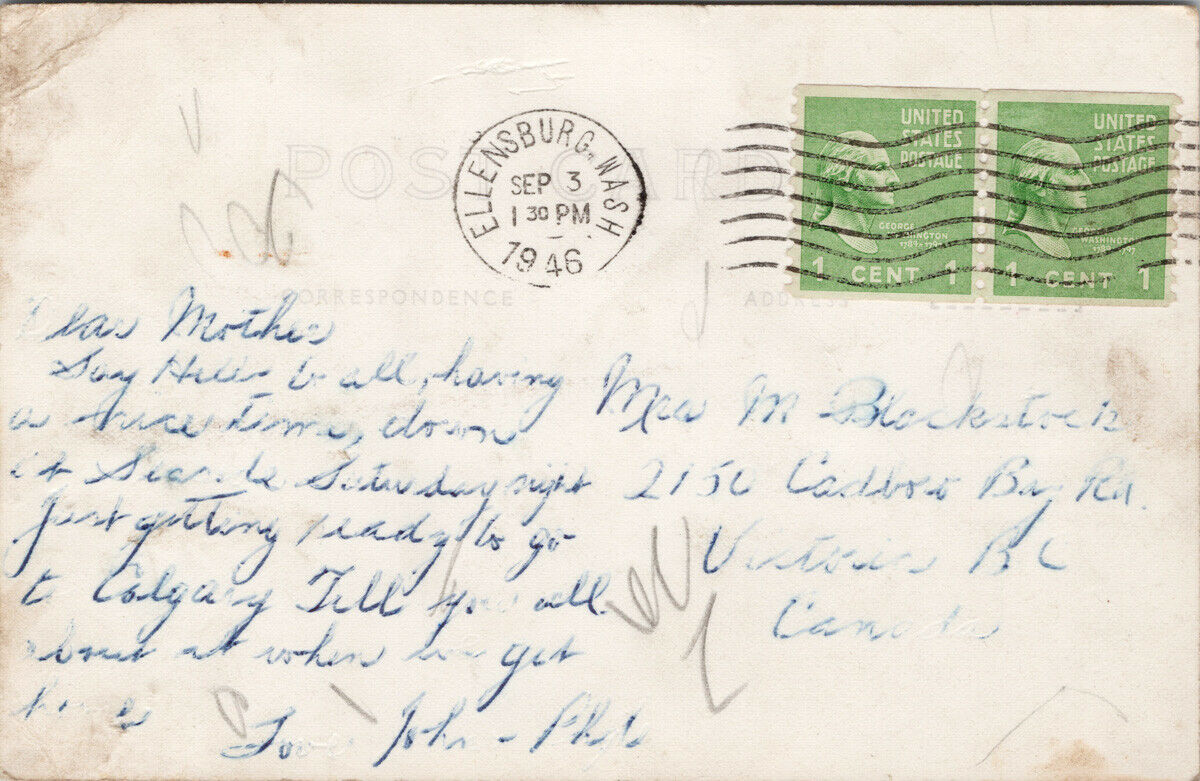 POST CARD
ELLENSBURG, WASH
SEP 3
1 30 PM
1946
UNITED STATES POSTAGE
GEORGE WASHINGTON
1789-1797
1 CENT 1
UNITED STATES POSTAGE
GEORGE WASHINGTON
1 CENT 1
CORRESPONDENCE
ADDRESS
Dear Mother
Say Hello to all, having
a nice time, down
at Seaside Saturday night
Just getting ready to go
to Calgary Tell you all
about it when we get
home
Love John -
Mrs M Blackstock
2150 Cadboro Bay Rd.
Victoria B C
Canada